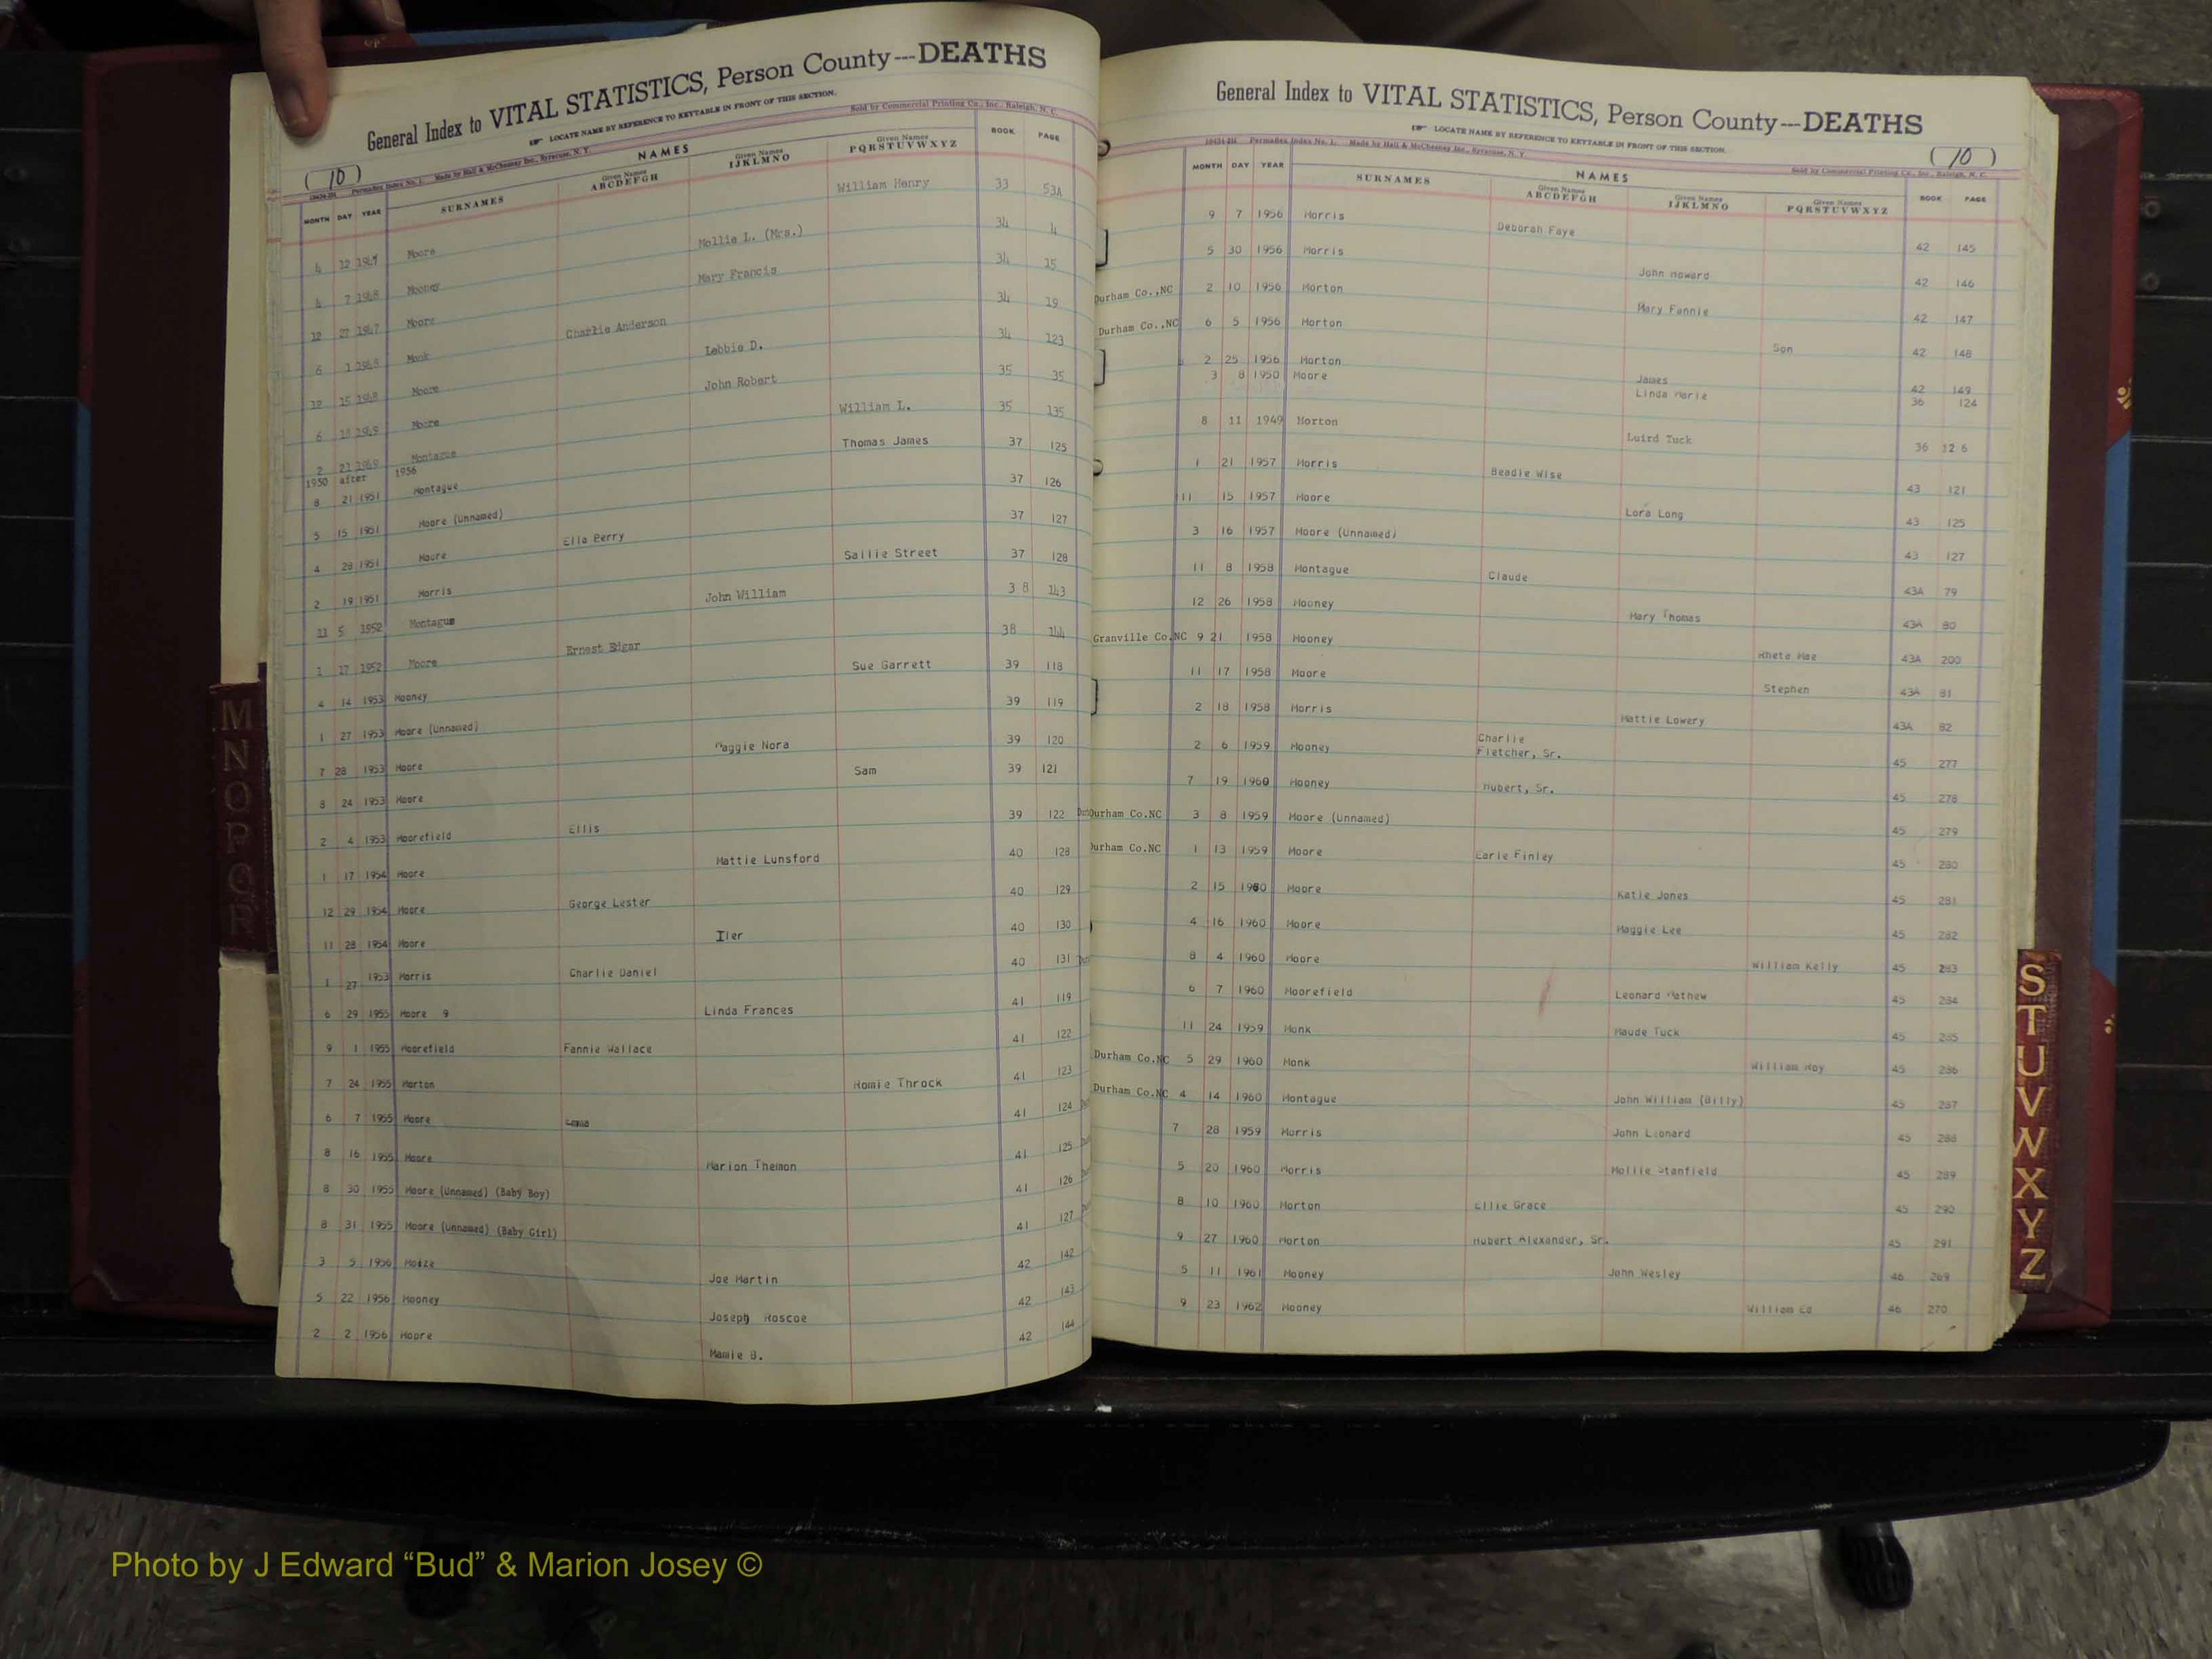 General Index to VITAL STATISTICS, Person County---DEATHS
LOCATE NAME BY REFERENCE TO KEYTABLE IN FRONT OF THIS SECTION.
(10)
Made by Hall & McChesney Inc., Syracuse, N. Y. Sold by Commercial Printing Co., Inc., Raleigh, N. C.
MONTH DAY YEAR SURNAMES NAMES Given Names ABCDEFGH Given Names IJKLMNO Given Names PQRSTUVWXYZ BOOK PAGE
4 12 Moore William Henry 33 53A
4 7 1948 Mooney Mollie L. (Mrs.) 34 4
12 27 1947 Moore Mary Francis 34 15
6 1 1948 Monk Charlie Anderson 34 19
12 15 1948 Moore Lebbie D. 34 123
6 1949 Moore John Robert 35 35
2 1949 Montague William L. 35 135
1950 after 1956
8 21 1951 Montague Thomas James 37 125
5 15 1951 Moore (Unnamed) 37 126
4 28 1951 Moore Ella Berry 37 127
2 19 1951 Morris Sallie Street 37 128
11 5 1952 Montague John William 38 143
1 17 1952 Moore Ernest Edgar 38 144
4 14 1953 Mooney Sue Garrett 39 118
1 27 1953 Moore (Unnamed) 39 119
7 28 1953 Moore Maggie Nora 39 120
8 24 1953 Moore Sam 39 121
2 4 1953 Moorefield Ellis 39 122
1 17 1954 Moore Mattie Lunsford 40 128
12 29 1954 Moore George Lester 40 129
11 28 1954 Moore Iler 40 130
1 27 1953 Morris Charlie Daniel 40 131
6 29 1955 Moore 9 Linda Frances 41 119
9 1 1955 Moorefield Fannie Wallace 41 122
7 24 1955 Morton Romie Throck 41 123
6 7 1955 Moore 41 124
8 16 1955 Moore Marion Themon 41 125
8 30 1955 Moore (Unnamed) (Baby Boy) 41 126
8 31 1955 Moore (Unnamed) (Baby Girl) 41 127
3 5 1956 Joe Martin 42 142
5 22 1956 Mooney Joseph Roscoe 42 143
2 2 1956 Moore Mamie B. 42 144
M
N
O
P
Q
R
General Index to VITAL STATISTICS, Person County---DEATHS
LOCATE NAME BY REFERENCE TO KEYTABLE IN FRONT OF THIS SECTION.
(10)
Made by Hall & McChesney Inc., Syracuse, N. Y. Sold by Commercial Printing Co., Inc., Raleigh, N. C.
MONTH DAY YEAR SURNAMES NAMES Given Names ABCDEFGH Given Names IJKLMNO Given Names PQRSTUVWXYZ BOOK PAGE
9 7 1956 Morris Deborah Faye 42 145
5 30 1956 Morris John Howard 42 146
Durham Co.,NC 2 10 1956 Morton Mary Fannie 42 147
Durham Co.,NC 6 5 1956 Morton Son 42 148
2 25 1956 Morton James 42 149
3 8 1950 Moore Linda Marie 36 124
8 11 1949 Morton Luird Tuck 36 126
1 21 1957 Morris Beadie Wise 43 121
11 15 1957 Moore Lora Long 43 125
3 16 1957 Moore (Unnamed) 43 127
11 8 1958 Montague Claude 43A 79
12 26 1958 Mooney Mary Thomas 43A 80
Granville Co.NC 9 21 1958 Mooney Rheta Mae 43A 200
11 17 1958 Moore Stephen 43A 81
2 18 1958 Morris Mattie Lowery 43A 82
2 6 1959 Mooney Charlie Fletcher, Sr. 45 277
7 19 1960 Mooney Hubert, Sr. 45 278
Durham Co.NC 3 8 1959 Moore (Unnamed) 45 279
Durham Co.NC 1 13 1959 Moore Earle Finley 45 280
2 15 1960 Moore Katie Jones 45 281
4 16 1960 Moore Maggie Lee 45 282
8 4 1960 Moore William Kelly 45 283
6 7 1960 Moorefield Leonard Mathew 45 284
11 24 1959 Monk Maude Tuck 45 285
Durham Co.NC 5 29 1960 Monk William Roy 45 286
Durham Co.NC 4 14 1960 Montague John William (Billy) 45 287
7 28 1959 Morris John Leonard 45 288
5 20 1960 Morris Mollie Stanfield 45 289
8 10 1960 Morton Ellie Grace 45 290
9 27 1960 Morton Hubert Alexander, Sr. 45 291
5 11 1961 Mooney John Wesley 46 269
9 23 1962 Mooney William Ed 46 270
S
T
U
V
W
X
Y
Z
Photo by J Edward “Bud” & Marion Josey ©